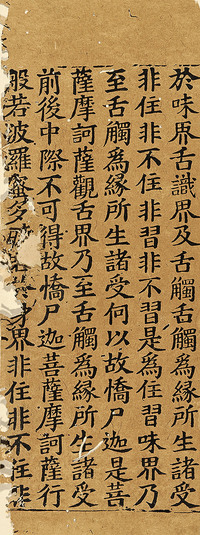 於味界舌識界及舌觸舌觸爲縁所生諸受
非住非不住非習非不習是爲住習味界乃
至舌觸爲縁所生諸受何以故憍尸迦是菩
薩摩訶薩觀舌界乃至舌觸爲縁所生諸受
前後中際不可得故憍尸迦菩薩摩訶薩行
般若波羅蜜多時 身界非住非不住非